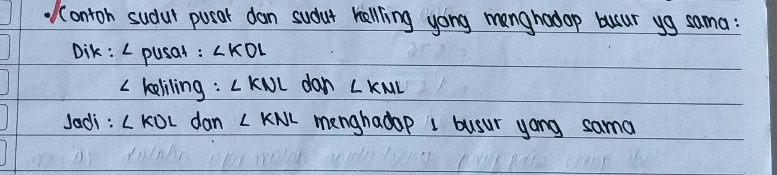 • Contoh sudut pusat dan sudut kelling yang menghadap busur yg sama:
Dik : ∠ pusat : ∠KOL
∠ keliling : ∠ KNL dan ∠ KML
Jadi : ∠ KOL dan ∠ KNL menghadap 1 busur yang sama